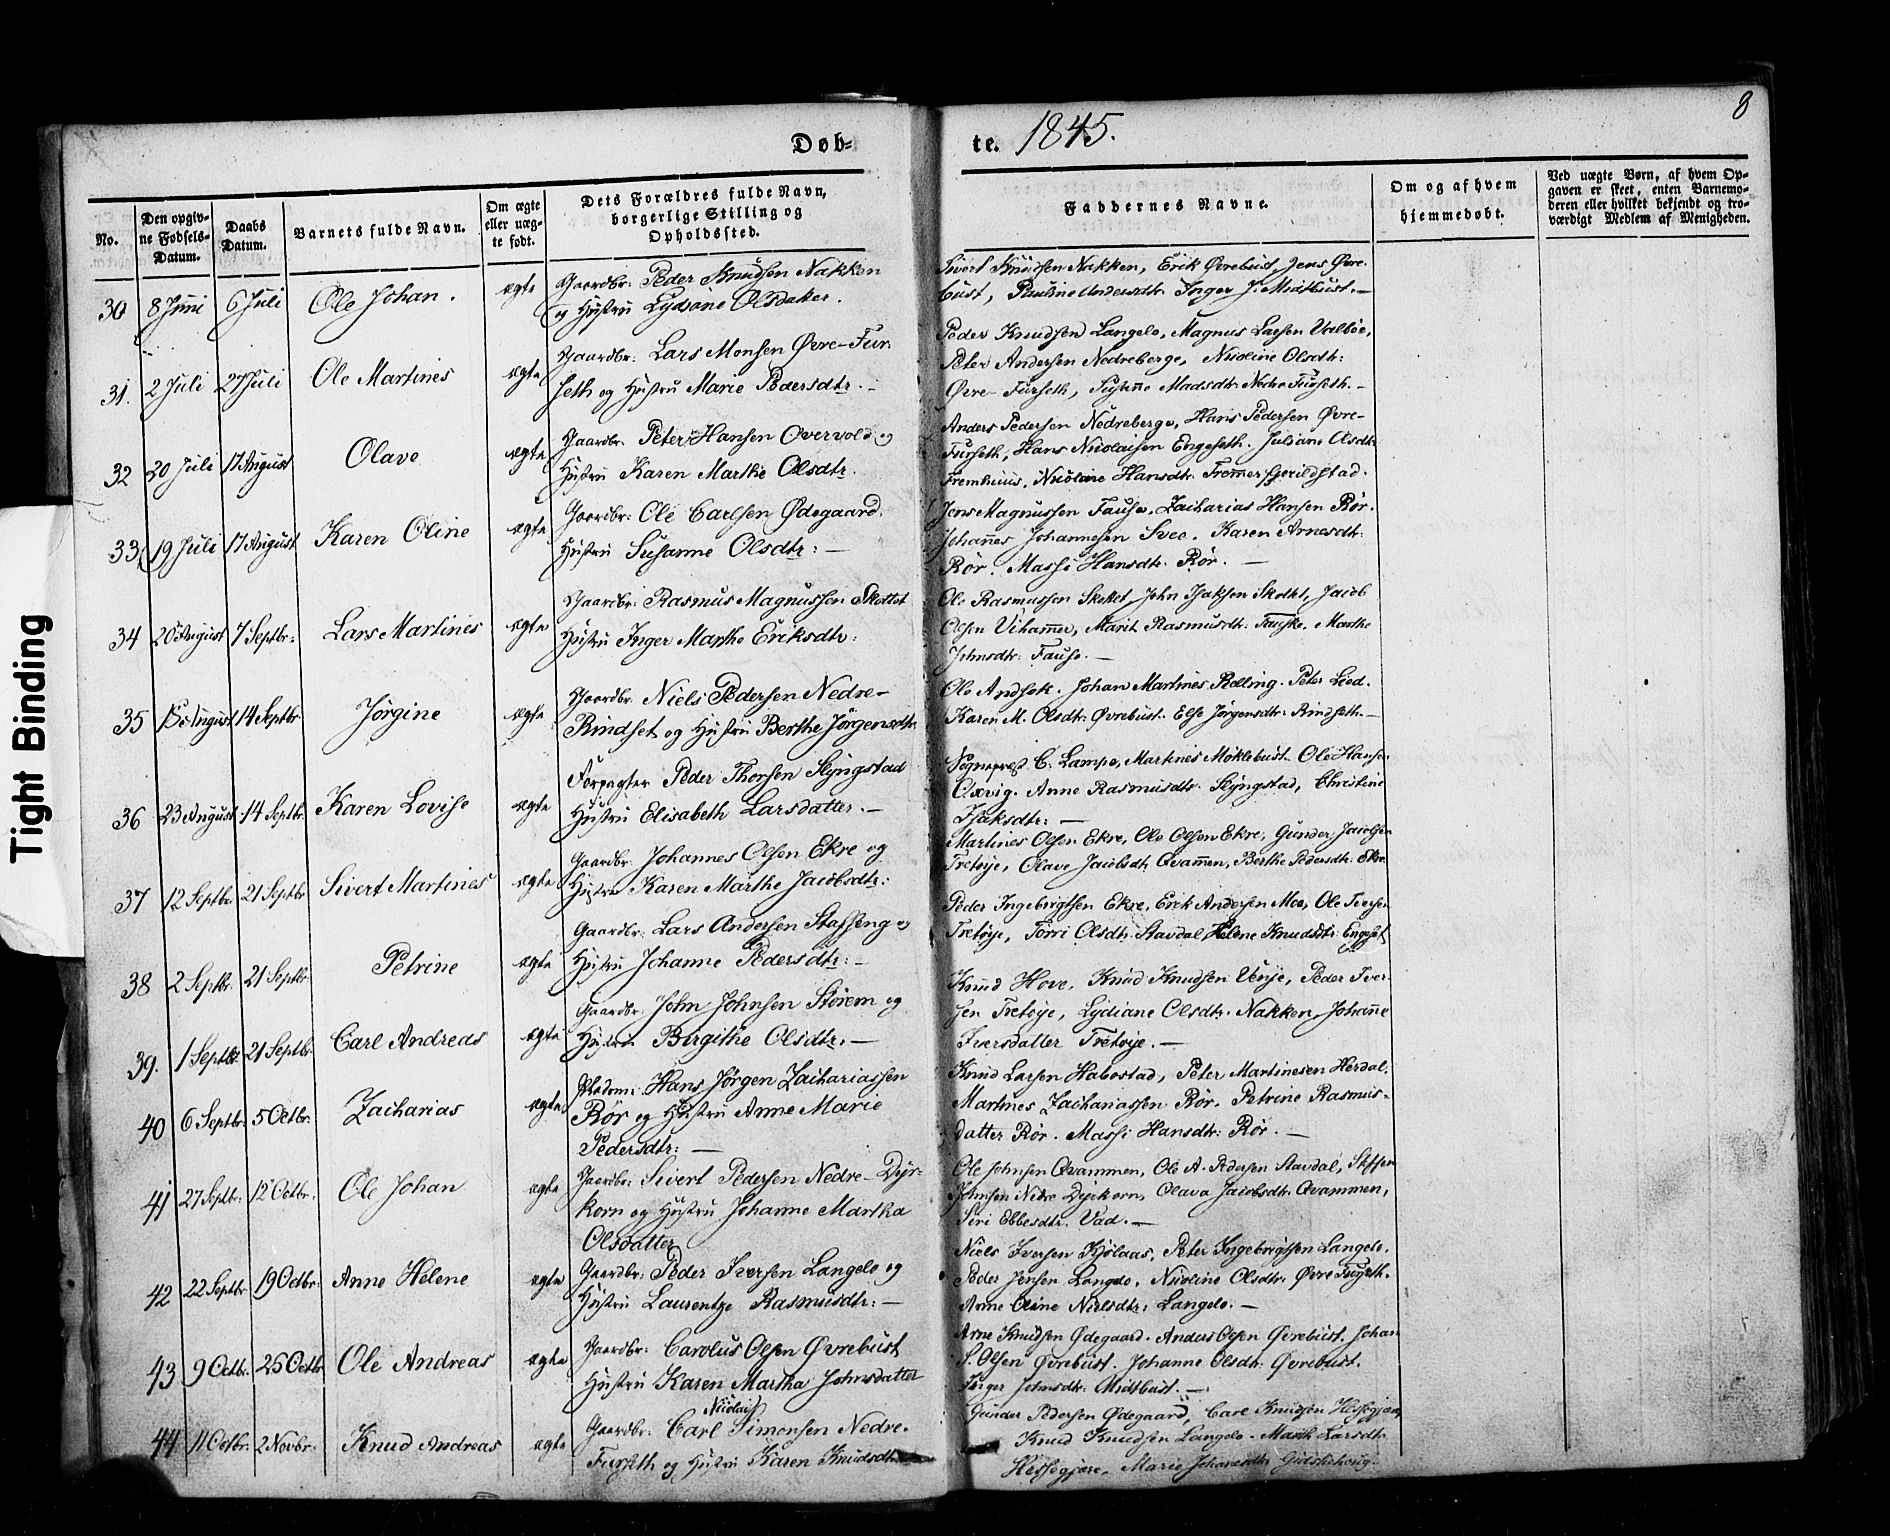 8
Døb-
te. 1845.
No.
Den opgiv-
ne Fødsels-
Datum.
Daabs
Datum.
Barnets fulde Navn.
Om ægte
eller uæg-
te født.
Dets Forældres fulde Navn,
borgerlige Stilling og
Opholdssted.
Faddernes Navne.
Om og af hvem
hjemmedøbt.
Ved uægte Børn, af hvem Op-
gaven er skeet, enten Barnemo-
deren eller hvilket bekjendt og tro-
værdigt Medlem af Menigheden.
30 8 Juni 6 Juli Ole Johan. ægte
Gaardbr: Peder Knudsen Nakken
og Hustru Lydiane Olsdatter.
Sivert Knudsen Nakken, Erik Øvrebust, Jens Øvre-
bust, Pauline Andersdtr. Inger J. Midtbust.—
31. 2 Juli 27 Juli Ole Martines ægte
Gaardbr: Lars Monsen Øvre-Fur-
seth og Hustru Marie Pedersdtr.—
Peder Knudsen Langelo, Magnus Larsen Valbøe,
Peter Andersen Nedreberge, Nicoline Olsdtr:
Øvre-Furseth, Susanne Madsdtr. Nedre Furseth.—
32 20 Juli 17 August Olave ægte
Gaardbr. Peter Hansen Overvold og
Hustru Karen Marthe Olsdtr.
Anders Pedersen Nedreberge, Hans Pedersen Øvre-
Furseth, Hans Nicolaisen Engeseth. Juliane Olsdtr
Fremhuus, Nicoline Hansdtr.
33. 19 Juli 17 August Karen Oline ægte
Gaardbr: Ole Carlsen Ødegaard.
Hustru Susanne Olsdtr:—
Jens Magnussen Fause, Zacharias Hansen Rør.
Johannes Johannesen Svee. Karen Arnesdtr:
Rør. Massi Hansdtr. Rør.—
34 20 August 7 Septbr: Lars Martines ægte
Gaardbr: Rasmus Magnussen Skottet
Hustru Inger Marthe Eriksdtr:
Ole Rasmussen Skottet, John Isaksen Skottet, Jacob
Olsen Vihammer, Marit Rasmusdtr: Fauske, Marthe
Johnsdtr: Fause.—
35 August 14 Septbr Jørgine ægte
Gaardbr. Niels Pedersen Nedre-
Rindset og Hustru Berthe Jørgensdtr.
Ole Andseth. Johan Martines Rølling. Peter Lied.
Karen M. Olsdtr: Øvrebust. Else Jørgensdtr: Rindseth.—
36 23 August 14 Septbr. Karen Lovise ægte
Forpagter Peder Thorsen Slyngstad
Hustru Elisabeth Larsdatter.—
Sognepræst C. Lampe, Martines Moklebust. Ole Hansen
Oxvig. Anne Rasmusdtr. Slyngstad, Christine
Isaksdtr:—
37 12 Septbr. 21 Septbr Sivert Martines ægte
Gaardbr. Johannes Olsen Ekre og
Hustru Karen Marthe Jacobsdtr:
Martines Olsen Ekre, Ole Olsen Ekre, Gunder Jacobsen
Tretøye, Olave Jacobsdtr. Qvammen, Berthe Pedersdtr: Ekre
38 2 Septbr. 21 Septbr. Petrine ægte
Gaardbr: Lars Andersen Stafseng og
Hustru Johanne Pedersdtr:—
Peder Ingebrigtsen Ekre, Erik Andersen Moe, Ole Iversen
Tretøye, Torri Olsdtr. Stavdal, Helene Knudsdtr: Engeset
39. 1 Septbr 21 Septbr. Carl Andreas ægte
Gaardbr: John Johnsen Störem og
Hustru Birgithe Olsdtr.—
Knud Hove, Knud Knudsen Venje, Peder Iver-
sen Tretøye, Lydiane Olsdtr. Nakken, Johanne
Iversdatter Tretøye.—
40 6 Septbr: 5 Octbr: Zacharias ægte
Hans Jörgen Zachariassen
Rör og Hustru Anne Marie
Pedersdtr:—
Knud Larsen Habostad, Peter Martinesen Herdal.
Martines Zachariassen Rør. Petrine Rasmus-
datter Rør. Massi Hansdtr: Rør.—
41 27 Septbr: 12 Octbr. Ole Johan ægte
Gaardbr: Sivert Pedersen Nedre-Dyr-
korn og Hustru Johanne Martha
Olsdatter
Ole Johnsen Qvammen, Ole A. Pedersen Stavdal, Steffen
Johnsen Nedre Dyrkorn, Olava Jacobsdtr: Qvammen,
Siri Ebbesdtr. Vad.—
42 22 Septbr 19 Octbr: Anne Helene ægte
Gaardbr: Peder Iversen Langelo og
Hustru Laurentze Rasmusdtr:—
Niels Iversen Kjølaas, Peter Ingebrigtsen Langelo.
Peder Jensen Langelo, Nicoline Olsdtr: Øvre Furseth.
Anne Oline Nielsdtr: Langelo.—
43 9 Octbr. 26 Octbr Ole Andreas ægte
Gaardbr: Carolus Olsen Øvrebust
Hustru Karen Martha Johnsdatter
Arne Knudsen Ødegaard. Anders Olsen Øvrebust. Johan
S. Olsen Øvrebust. Johanne Olsdtr: Øvrebust.
Inger Johnsdtr: Midtbust.—
44 11 Octbr. 2 Novbr. Knud Andreas ægte
Nicolai
Gaardbr: Carl Simonsen Nedre-
Furseth og Hustru Karen Knudsdtr
Gunder Pedersen Ødegaard, Carl Knudsen
Knud Knudsen Langelo. Marth Larsdtr.
Marie
Tight Binding